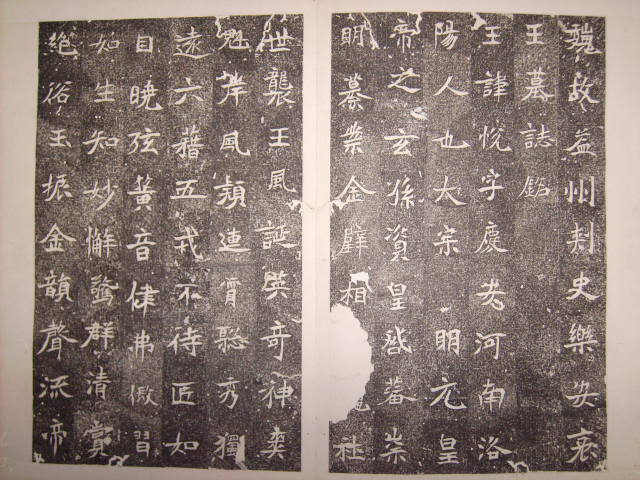 魏故益州刾史樂安哀
王墓誌銘
王諱悅字慶安河南洛
陽人也太宗明元皇
帝之玄孫資皇啓蕃崇
明慕崇金璧相
世襲王風誕英奇神奕
魁岸風頴連霄聡秀獨
遠六藉五戎不待匠如
自曉弦簧音律弗倣習
如生知妙懈發群清賞
絕俗玉振金韻聲流帝